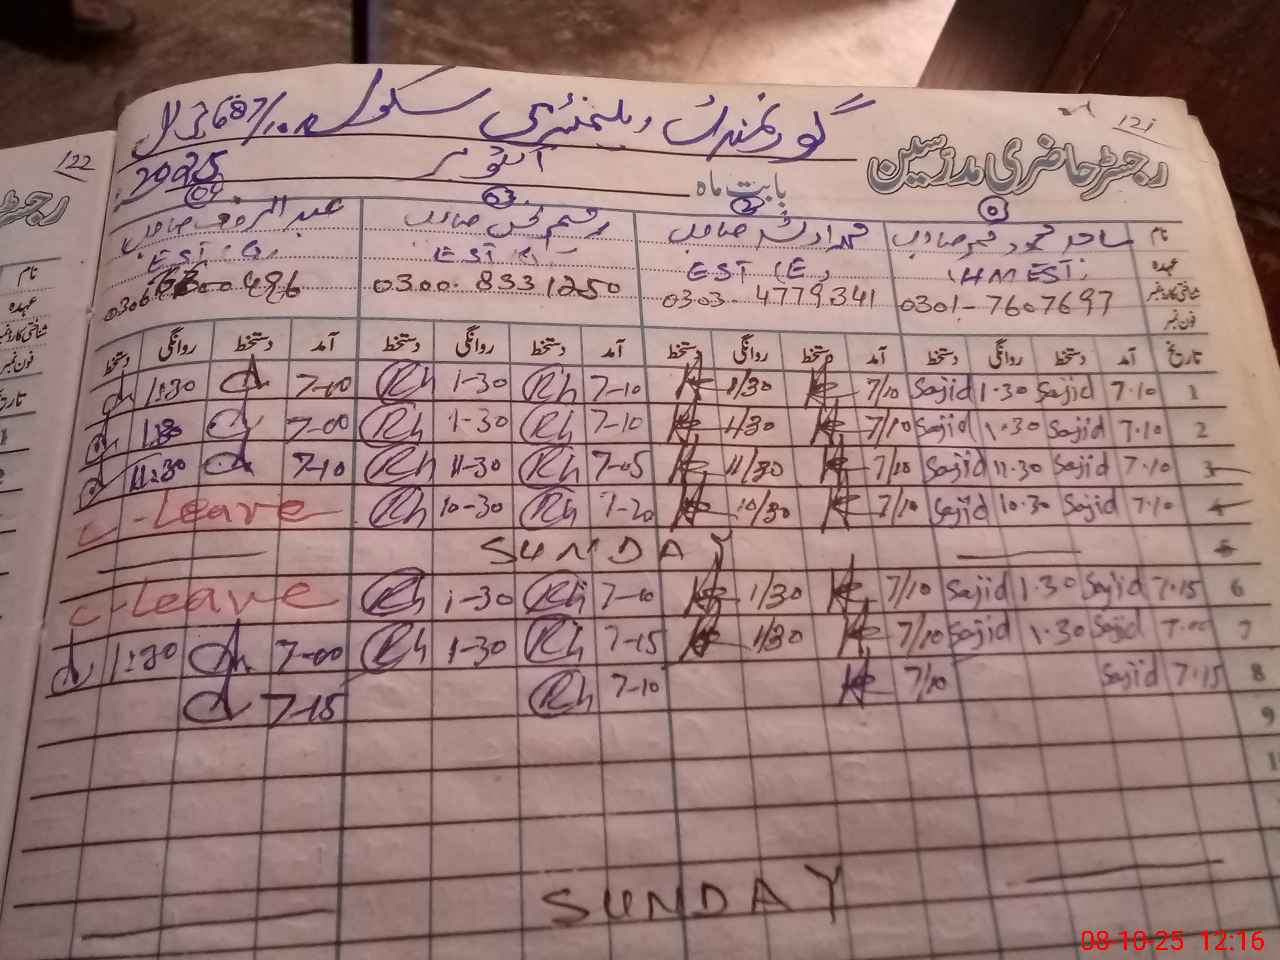 122
121
گورنمنٹ ایلیمنٹری سکول 687/
رجسٹر حاضری مدرسین
بابت ماہ اکتوبر 2025
نام ساجد محمود صاحب محمد ارشد صاحب عبدالرؤف صاحب
عہدہ (HM EST) EST (E) EST
شناختی کارڈ نمبر
فون نمبر 0301-7607697 0303-4779341 0300-8331250
تاریخ آمد دستخط روانگی دستخط آمد دستخط روانگی دستخط آمد دستخط روانگی دستخط آمد دستخط روانگی دستخط
1 7.10 Sajid 1.30 Sajid 7/10 1/30 7-10 Rh 1-30 Rh 7-00 1:30
2 7.10 Sajid 1.30 Sajid 7/10 1/30 7-10 Rh 1-30 Rh 7-00 1:30
3 7.10 Sajid 11.30 Sajid 7/10 11/30 7-05 Rh 11-30 Rh 7-10 11:30
4 7.10 Sajid 10.30 Sajid 7/10 10/30 7-20 Rh 10-30 Rh C-Leave
5 SUNDAY
6 7.15 Sajid 1.30 Sajid 7/10 1/30 7-10 Rh 1-30 Rh C-Leave
7 7.00 Sajid 1.30 Sajid 7/10 1/30 7-15 Rh 1-30 Rh 7-00 1:30
8 7.15 Sajid 7/10 7-10 Rh 7-15
9
SUNDAY
08-10-25 12:16